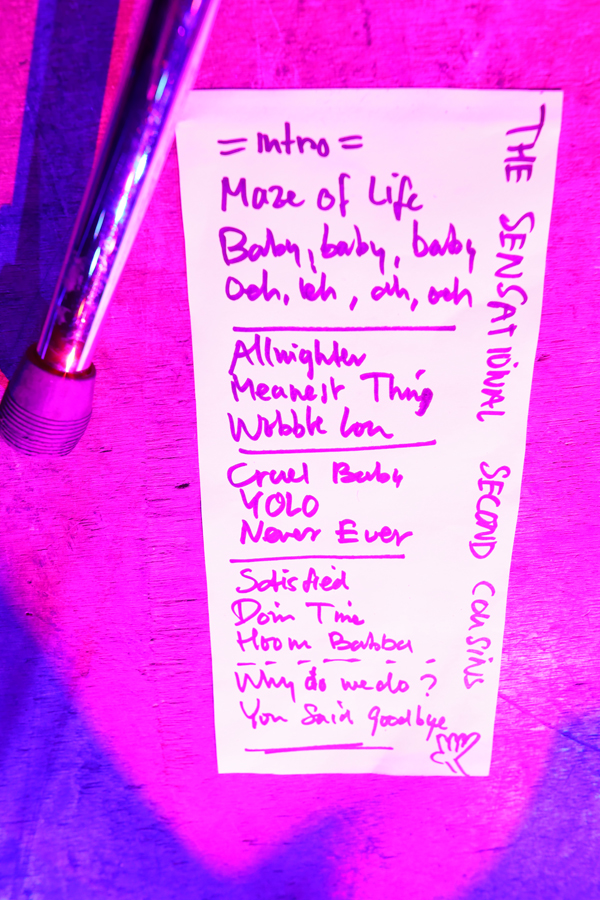 = Intro =
Maze of Life
Baby, baby, baby
Ooh, ooh, ooh, ooh
Allnighter
Meanest Thing
Wobble Lou
Cruel Baby
YOLO
Never Ever
Satisfied
Doin Time
Hoom Babba
Why do we do?
You Said goodbye
THE SENSATIONAL SECOND COUSINS